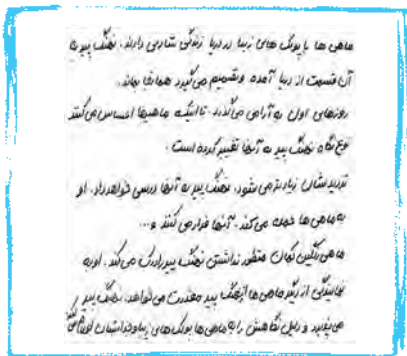 ماهی ها با پولک های زیبا در دریا زندگی شادی دارند. نهنگ پیر به
آن قسمت از دریا آمده و تصمیم می‌گیرد همانجا بماند.
روزهای اول به آرامی می‌گذرد. تا اینکه ماهیها احساس می‌کنند
نوع نگاه نهنگ پیر به آنها تغییر کرده است.
تردیدشان زیادتر می شود. نهنگ پیر به آنها درسی خواهد داد. او
به ماهی ها حمله می کند. آنها فرار می کنند و...
ماهی رنگین کمان منظور نداشتن نهنگ پیر را درک می کند. او به
نمایندگی از دیگر ماهی ها از نهنگ پیر معذرت می خواهد. نهنگ پیر
می پذیرد و دلیل نگاهش را به ماهی ها پولک های زیبا و